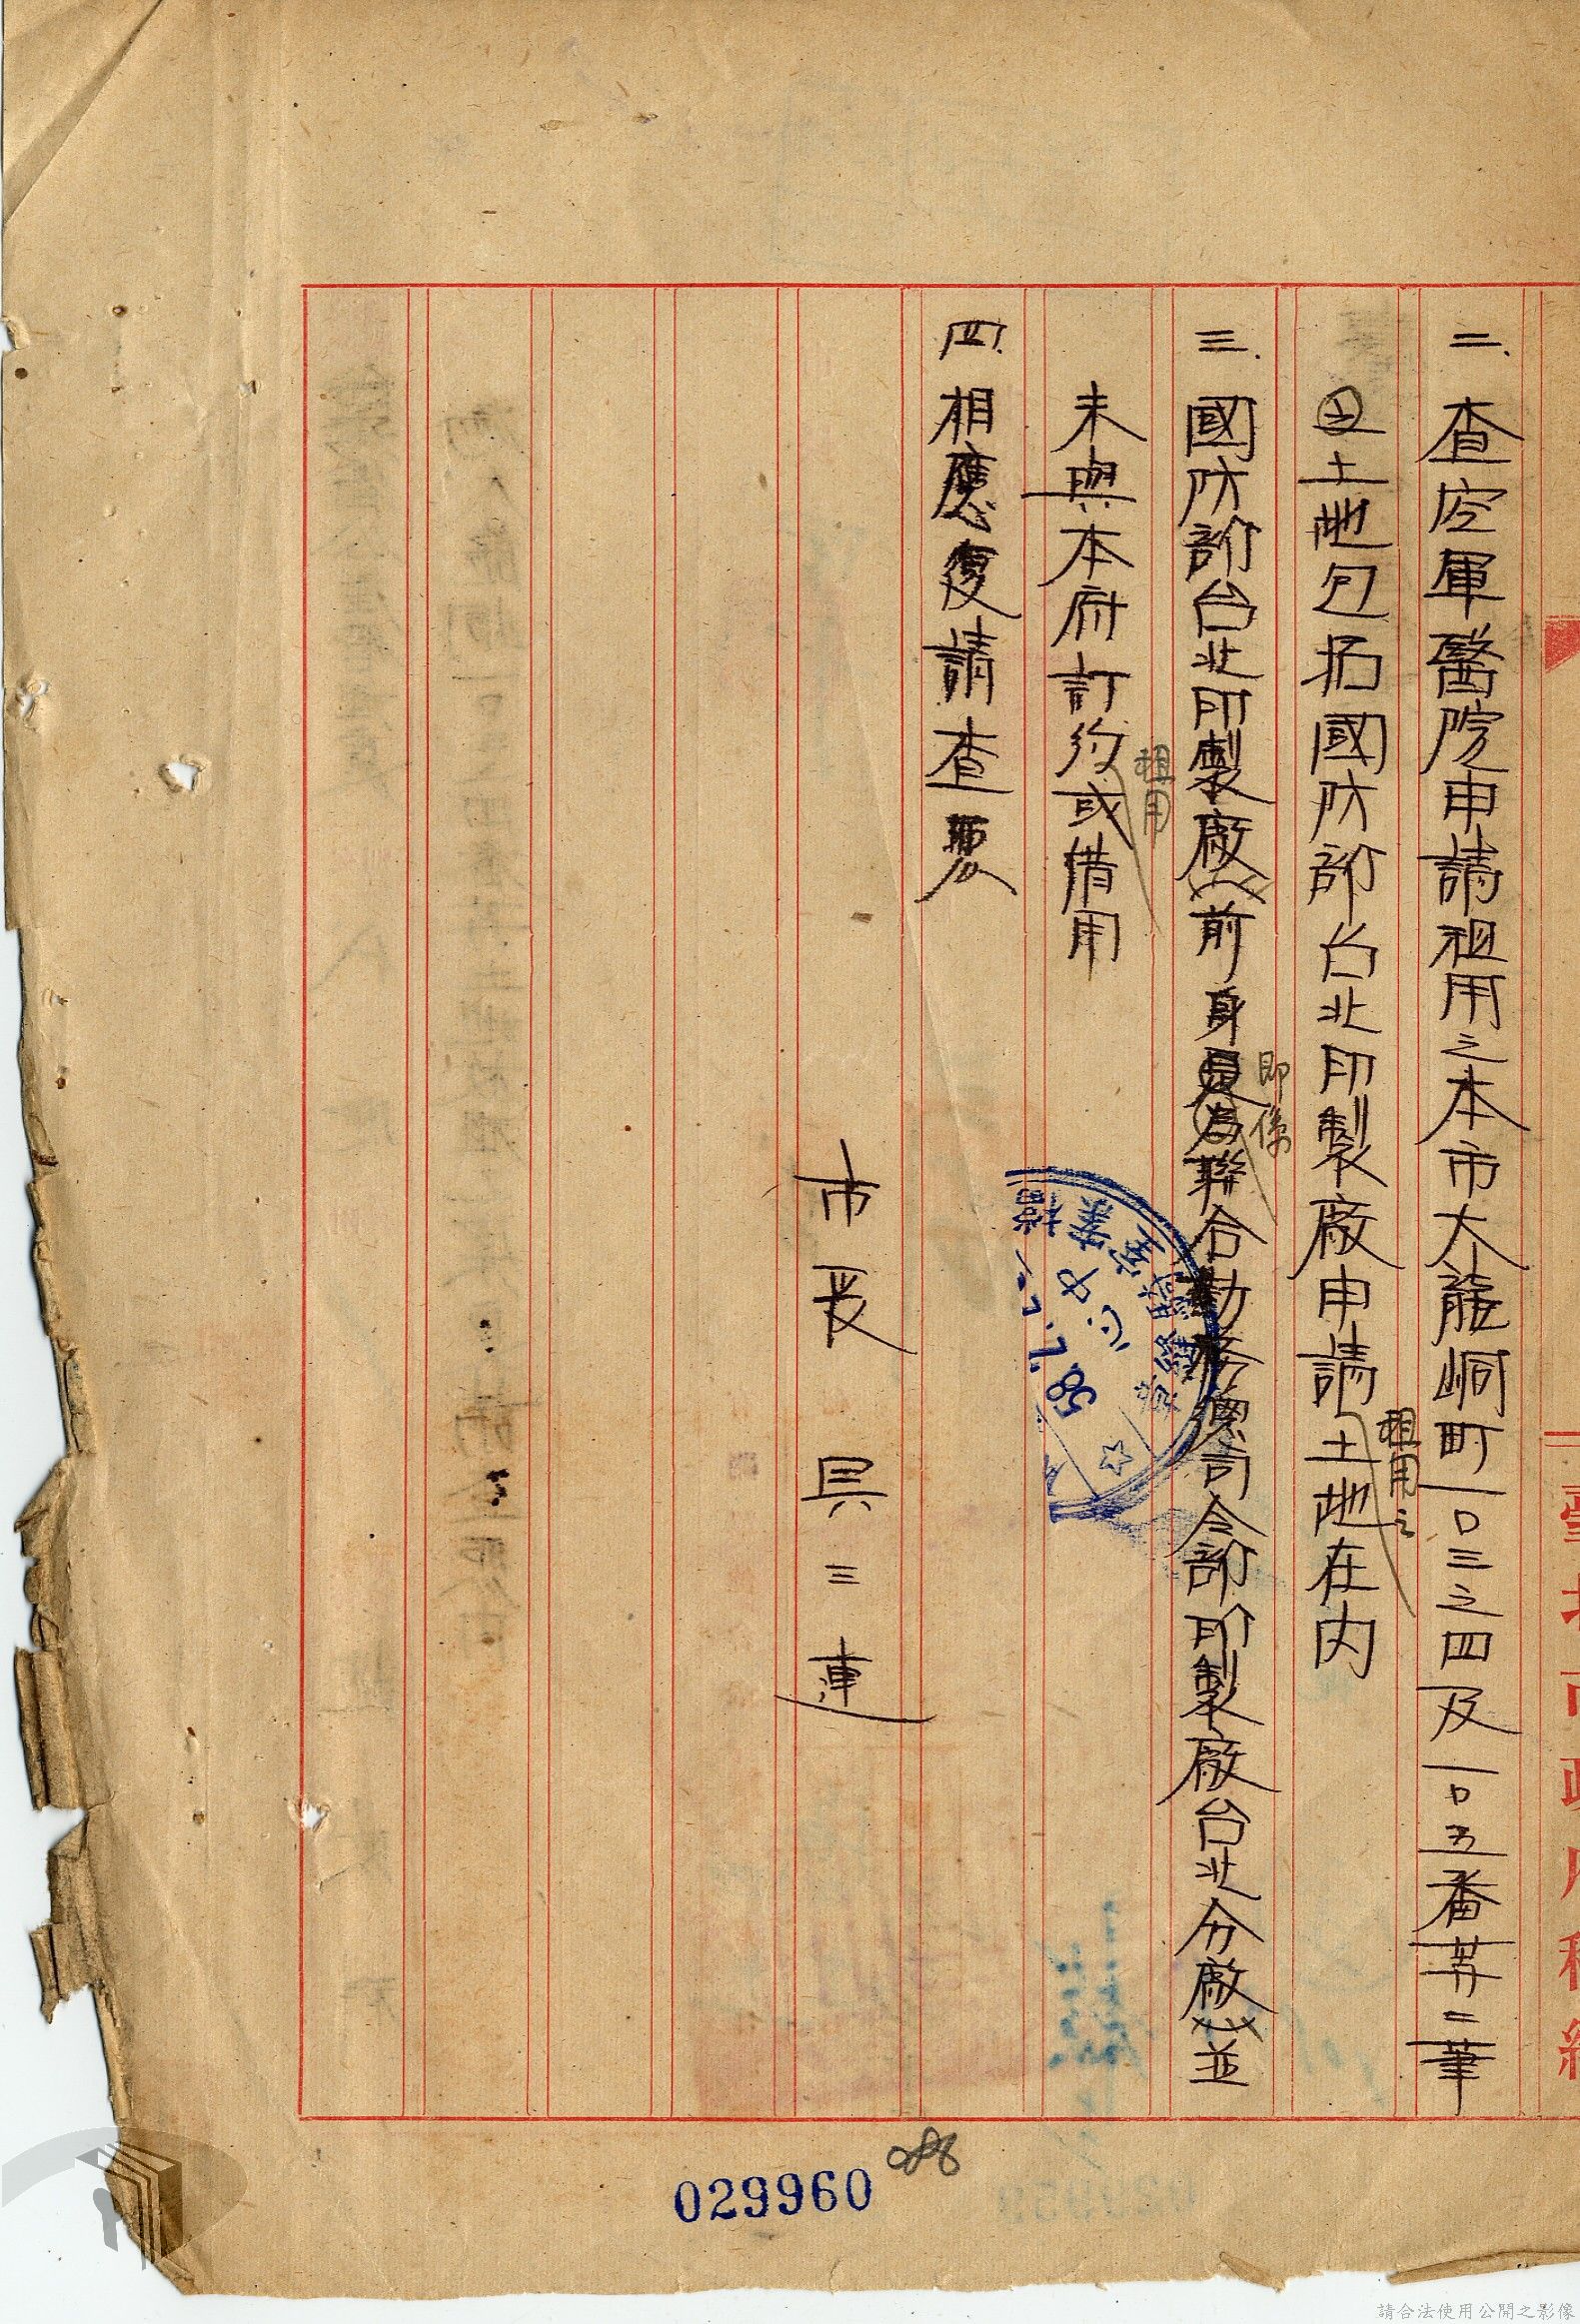 臺北市政府稿紙
二、查空軍醫院申請租用之本市大龍峒町一〇三之四及一〇五番等二筆
土地包括國防部台北印製廠申請租用之土地在內
三、國防部台北印製廠(前身即係聯合勤務總司令部印製廠台北分廠)並
未與本府訂約租用或借用
四、相應復請查照
市長 吳三連
檔案中心
58.7.
029960
086
請合法使用公開之影像